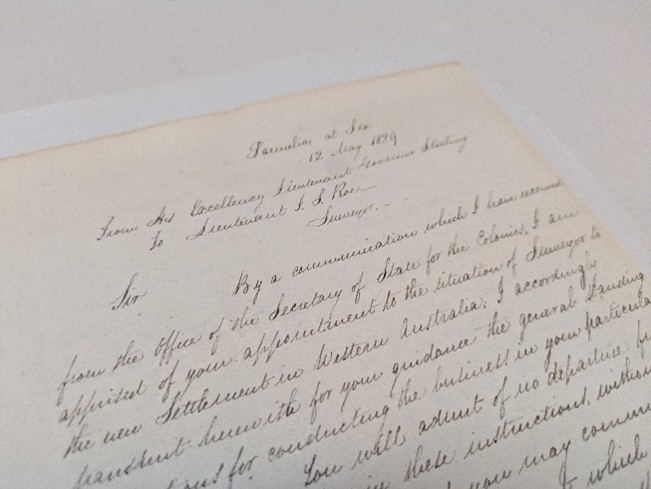 Parmelia at Sea
12 May 1829
From His Excellency Lieutenant Governor Stirling
To Lieutenant J. S. Roe
Surveyor.
Sir
By a communication which I have received
from the Office of the Secretary of State for the Colonies, I am
apprised of your appointment to the situation of Surveyor to
the new Settlement in Western Australia. I accordingly
transmit herewith for your guidance the general Standing
for conducting the business in your particular
You will admit of no departure
these instructions, without
you may
which